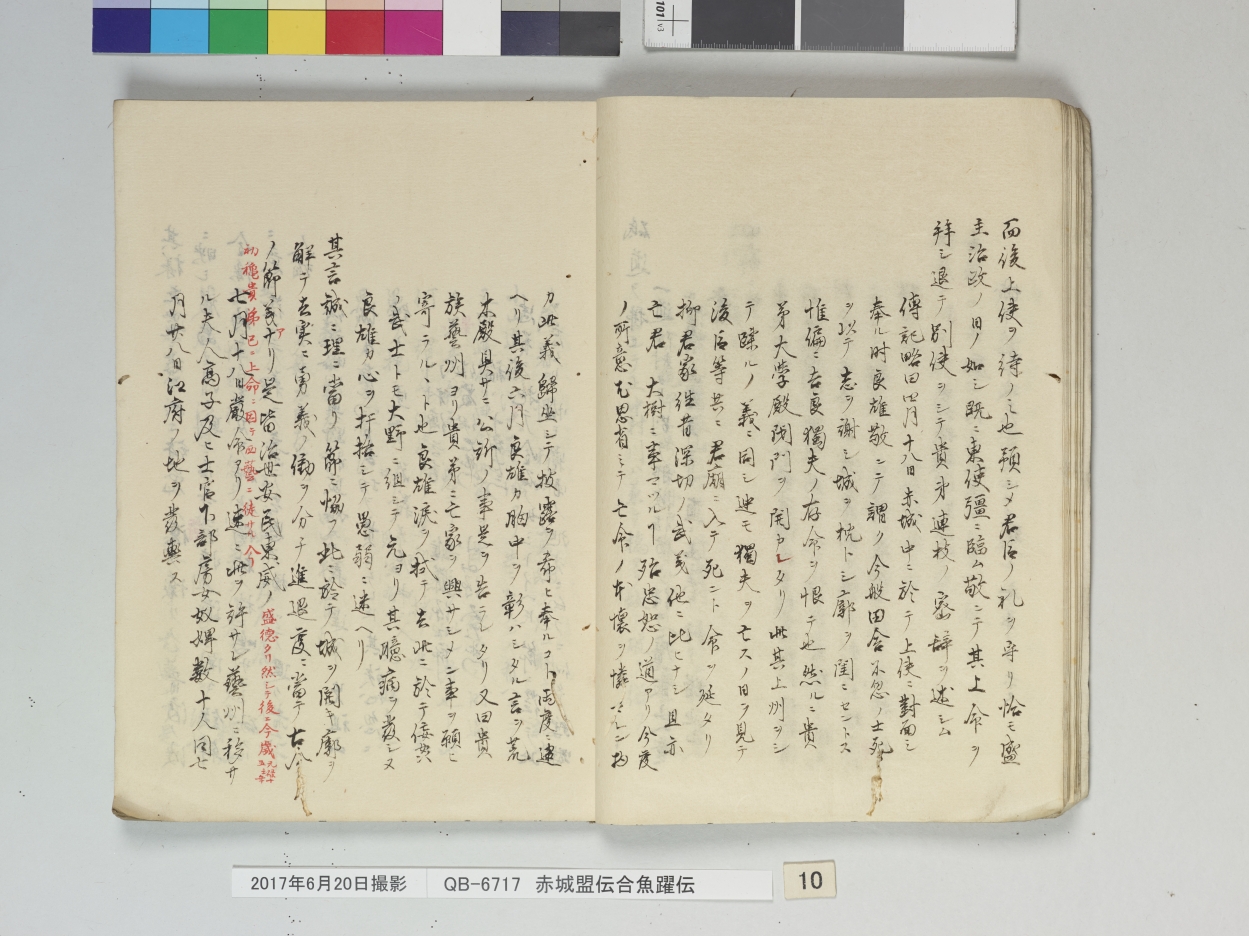 而後上使ヲ待ノミ也預シメ君臣ノ礼ヲ守リ恰モ盛
主治政ノ日ノ如シ既ニ東使彊ニ臨ム敬ニテ其上命ヲ
拝シ退テ別使ヲシテ貴弟連枝ノ密辞ヲ述シム
傳記略曰四月十八日赤城中ニ於テ上使ニ對面シ
奉ル时良雄敬ニテ謂ク今般田舎不忽ノ士死
ヲ以テ志ヲ謝シ城ヲ枕トシ廓ヲ閨ニセントス
惟偏ニ吉良獨夫ノ存命ヲ恨テ也然ルニ貴
弟大学殿閉門ヲ開カレタリ此其上州ヲシ
テ蹂ルノ義ニ同シ迚モ獨夫ヲ亡スノ日ヲ見テ
後臣等共ニ君廟ニ入テ死ニト命ヲ延タリ
抑君家往昔深切ノ武義他ニ比ヒナシ且亦
亡君 大樹ニ事マツル 殆忠恕ノ道アリ今度
ノ所意ヲ思省ミテ亡命ノ本懐ヲ憐マレン
カ此義歸坐シテ披露ヲ希ヒ奉ルコト両度ニ逮
ヘリ其後六月良雄カ胸中ヲ彰ハシタル言ヲ荒
木殿具サニ公卿ノ事足ヲ告ラレタリ又曰貴
族藝州ヨリ貴弟ニ亡家ヲ興サシメン事ヲ願ヒ
寄ラルヽト也良雄涙ヲ拭テ去此ニ於テ佞
ノ武士トモ大野ニ組シテ元ヨリ其臆病ヲ發シ又
良雄カ心ヲ打括シテ愚弱ニ迷ヘリ
其言誠ニ理ニ當リ節ニ協フ此ニ於テ城ヲ開キ廓ヲ
解テ去実ニ勇義ノ働ヲ分チ進退度ニ當テ古今
ノ節義ナリ是皆治世安民東威ノ盛徳タリ然シテ後ニ今歳元禄十五壬午
初穐貴弟已ニ上命ニ因テ西藝ニ徒サル今
七月十八日嚴命アリ速ニ此ヲ許サレ藝州ニ移サ
ル夫人高子及ヒ士官下部房女奴婢数十人同七
月廿八日江府ノ地ヲ發輿ス
2017年6月20日撮影 QB-6717 赤城盟伝合魚躍伝
10